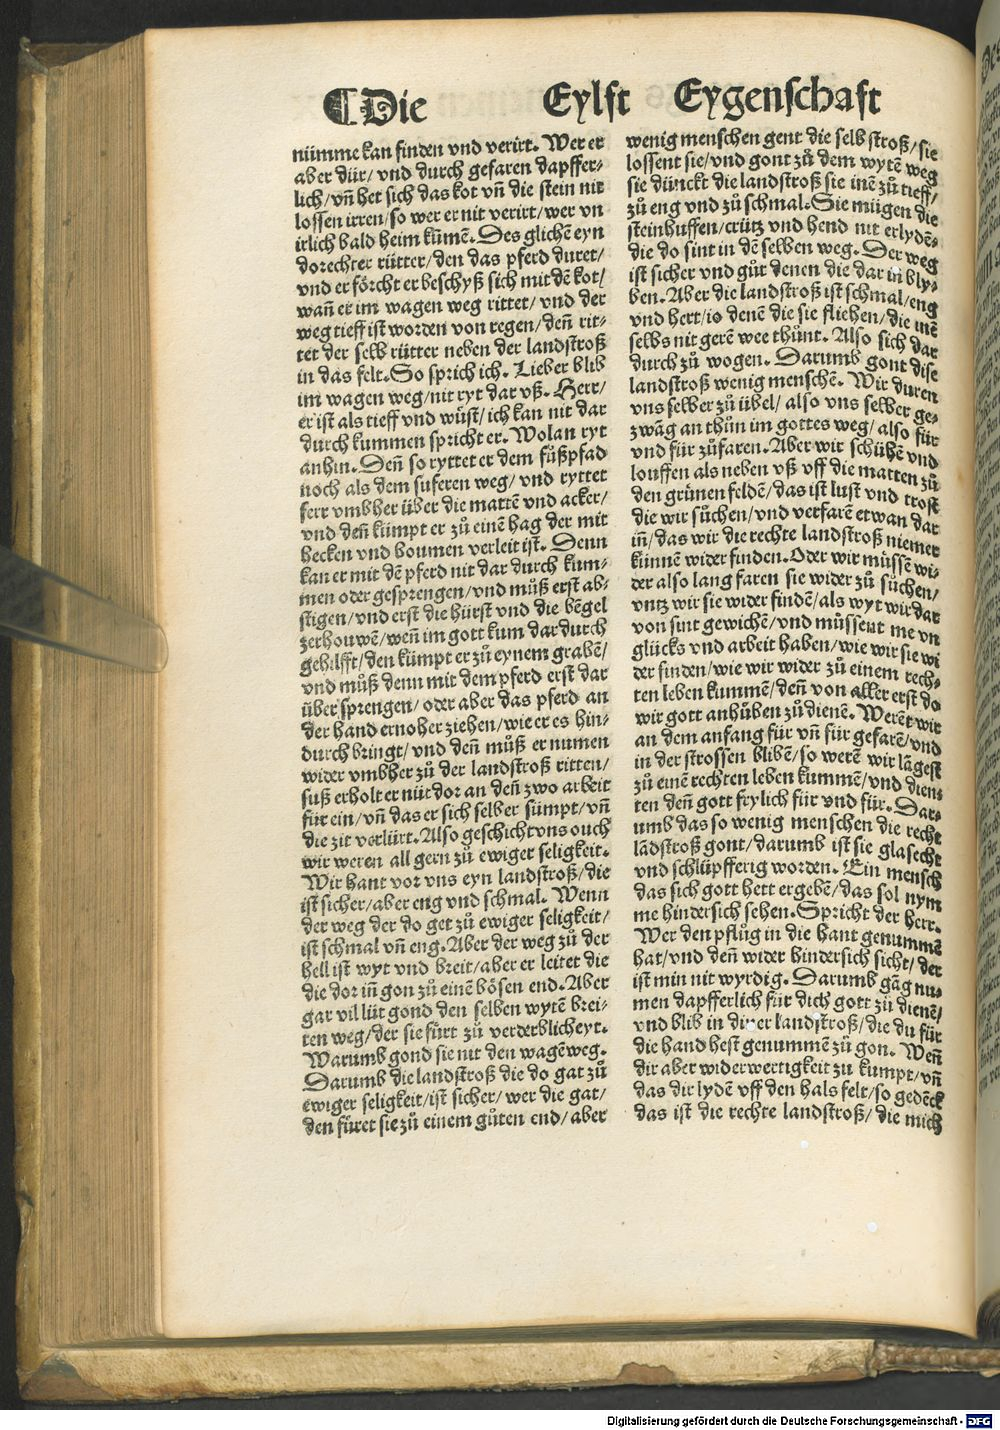 ¶Die Eylft Eygenschaft
nümme kan finden vnd verirt. Wer er
aber dür/ vnd durch gefaren dapffer-
lich/ vñ het sich das kot vñ die stein nit
lossen irren/ so wer er nit verirt/ wer vn
irlich bald heim kūmē. Des glichē eyn
dorechter rütter/ den das pferd duret/
vnd er förcht er beschyß sich mit dē kot/
wañ er im wagen weg rittet/ vnd der
weg tieff ist worden von regen/ deñ rit-
tet der selb rütter neben der landstroß
in das felt. So sprich ich. Lieber blib
im wagen weg/ nit ryt dar vß. Herr/
er ist als tieff vnd wüst/ ich kan nit dar
durch kummen spricht er. Wolan ryt
anhin. Deñ so ryttet er dem fůßpfad
noch als dem suferen weg/ vnd ryttet
ferr vmbher über die mattē vnd acker/
vnd deñ kümpt er zů einē hag der mit
hecken vnd boumen verleit ist. Denn
kan er mit dē pferd nit dar durch kum-
men oder gesprengen/ vnd můß erst ab-
stigen/ vnd erst die hürst vnd die bēgel
zerhouwē/ weñ im gott kum dar durch
gehilfft/ den kümpt er zů eynem graben/
vnd můß denn mit dem pferd erst dar
über sprengen/ oder aber das pferd an
der hand ernoher ziehen/ wie er es hin-
durch bringt/ vnd deñ můß er numen
wider vmbher zů der landstroß ritten/
suß erholt er nüt dor an deñ zwo arbeit
für ein/ vñ das er sich selber sümpt/ vñ
die zit verlürt. Also geschicht vns ouch
wir weren all gern zů ewiger seligkeit.
Wir hant vor vns eyn landstroß/ die
ist sicher/ aber eng vnd schmal. Wenn
der weg der do get zů ewiger seligkeit/
ist schmal vñ eng. Aber der weg zů der
hell ist wyt vnd breit/ aber er leitet die
die dor iñ gon zů einē bösen end. Aber
gar vil lüt gond den selben wytē brei-
ten weg/ der sie fürt zů verderblicheyt.
Warumb gond sie nit den wagē weg.
Darumb die landstroß die do gat zů
ewiger seligkeit/ ist sicher/ wer die gat/
den füret sie zů einem gůten end/ aber
wenig menschen gent die selb stroß/ sie
lossent sie/ vnd gont zů dem wytē weg
sie dünckt die landstroß sie inē zů tieff/
zů eng vnd zů schmal. Sie mügen die
steinhuffen/ crütz vnd hend nit erlydē-
die do sint in dē selben weg. Der weg
ist sicher vnd gůt denen die dar in bly-
ben. Aber die landstroß ist schmal/ eng
vnd hert/ io denē die sie fliehen/ die inē
selbs nit gerē wee thůnt. Also sich dar
durch zů wogen. Darumb gont dise
landstroß wenig menschē. Wir duren
vns selber zů übel/ also vns selber ge-
zwāg an thůn im gottes weg/ also für
vnd für zůfaren. Aber wir schühē vnd
louffen als neben vß vff die matten zů
den grünen feldē/ das ist lust vnd trost
die wir sůchen/ vnd verfarē etwan dar
iñ/ das wir die rechte landstroß niemer
künnē wider finden. Oder wir müssē wi-
der also lang faren sie wider zů sůchen/
vntz wir sie wider findē/ als wyt wir dar
von sint gewichē/ vnd müssent me vn
glücks vnd arbeit haben/ wie wir sie wi
der finden/ wie wir wider zů einem rech-
ten leben kummē/ deñ von aller erst do
wir gott anhůben zů dienē. Werēt wir
an dem anfang für vñ für gefarē/ vnd
in der strossen blibē/ so werē wir lāgest
zů einē rechten leben kummē/ vnd dien-
ten deñ gott frylich für vnd für. Dar-
umb das so wenig menschen die recht
lādstroß gont/ darumb ist sie glasecht
vnd schlüpfferig worden. Ein mensch
das sich gott hett ergebē/ das sol nym
me hindersich sehen. Spricht der herr.
Wer den pflůg in die hant genummē
hat/ vnd deñ wider hindersich sicht/ der
ist min nit wyrdig. Darumb gāg nu-
men dapfferlich für dich gott zů dienē/
vnd blib in diner landstroß/ die du für
die hand hest genummē zů gon. Weñ
dir aber widerwertigkeit zu kumpt/ vñ
das dir lydē vff den hals felt/ so gedēck
das ist die rechte landstroß/ die mich
Digitalisierung gefördert durch die Deutsche Forschungsgemeinschaft - DFG